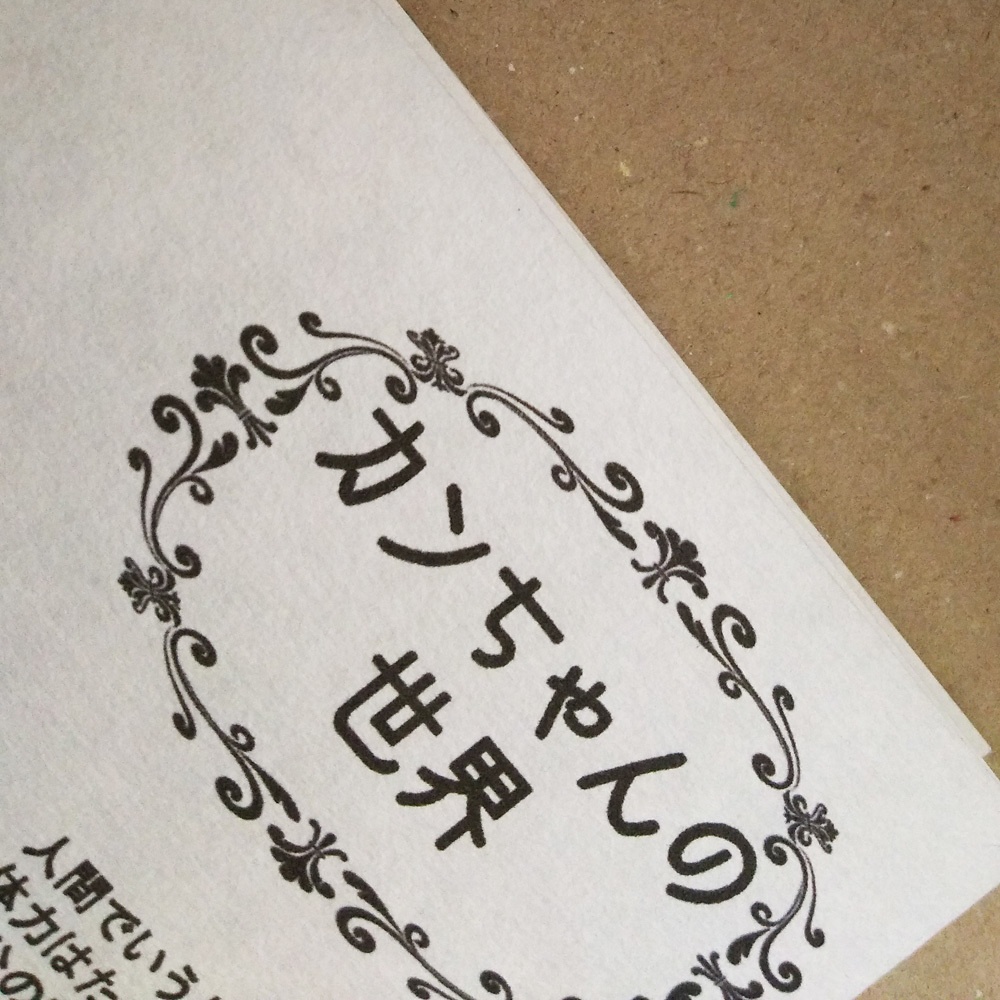 カンちゃんの
世界
人間でいう
体力は
の